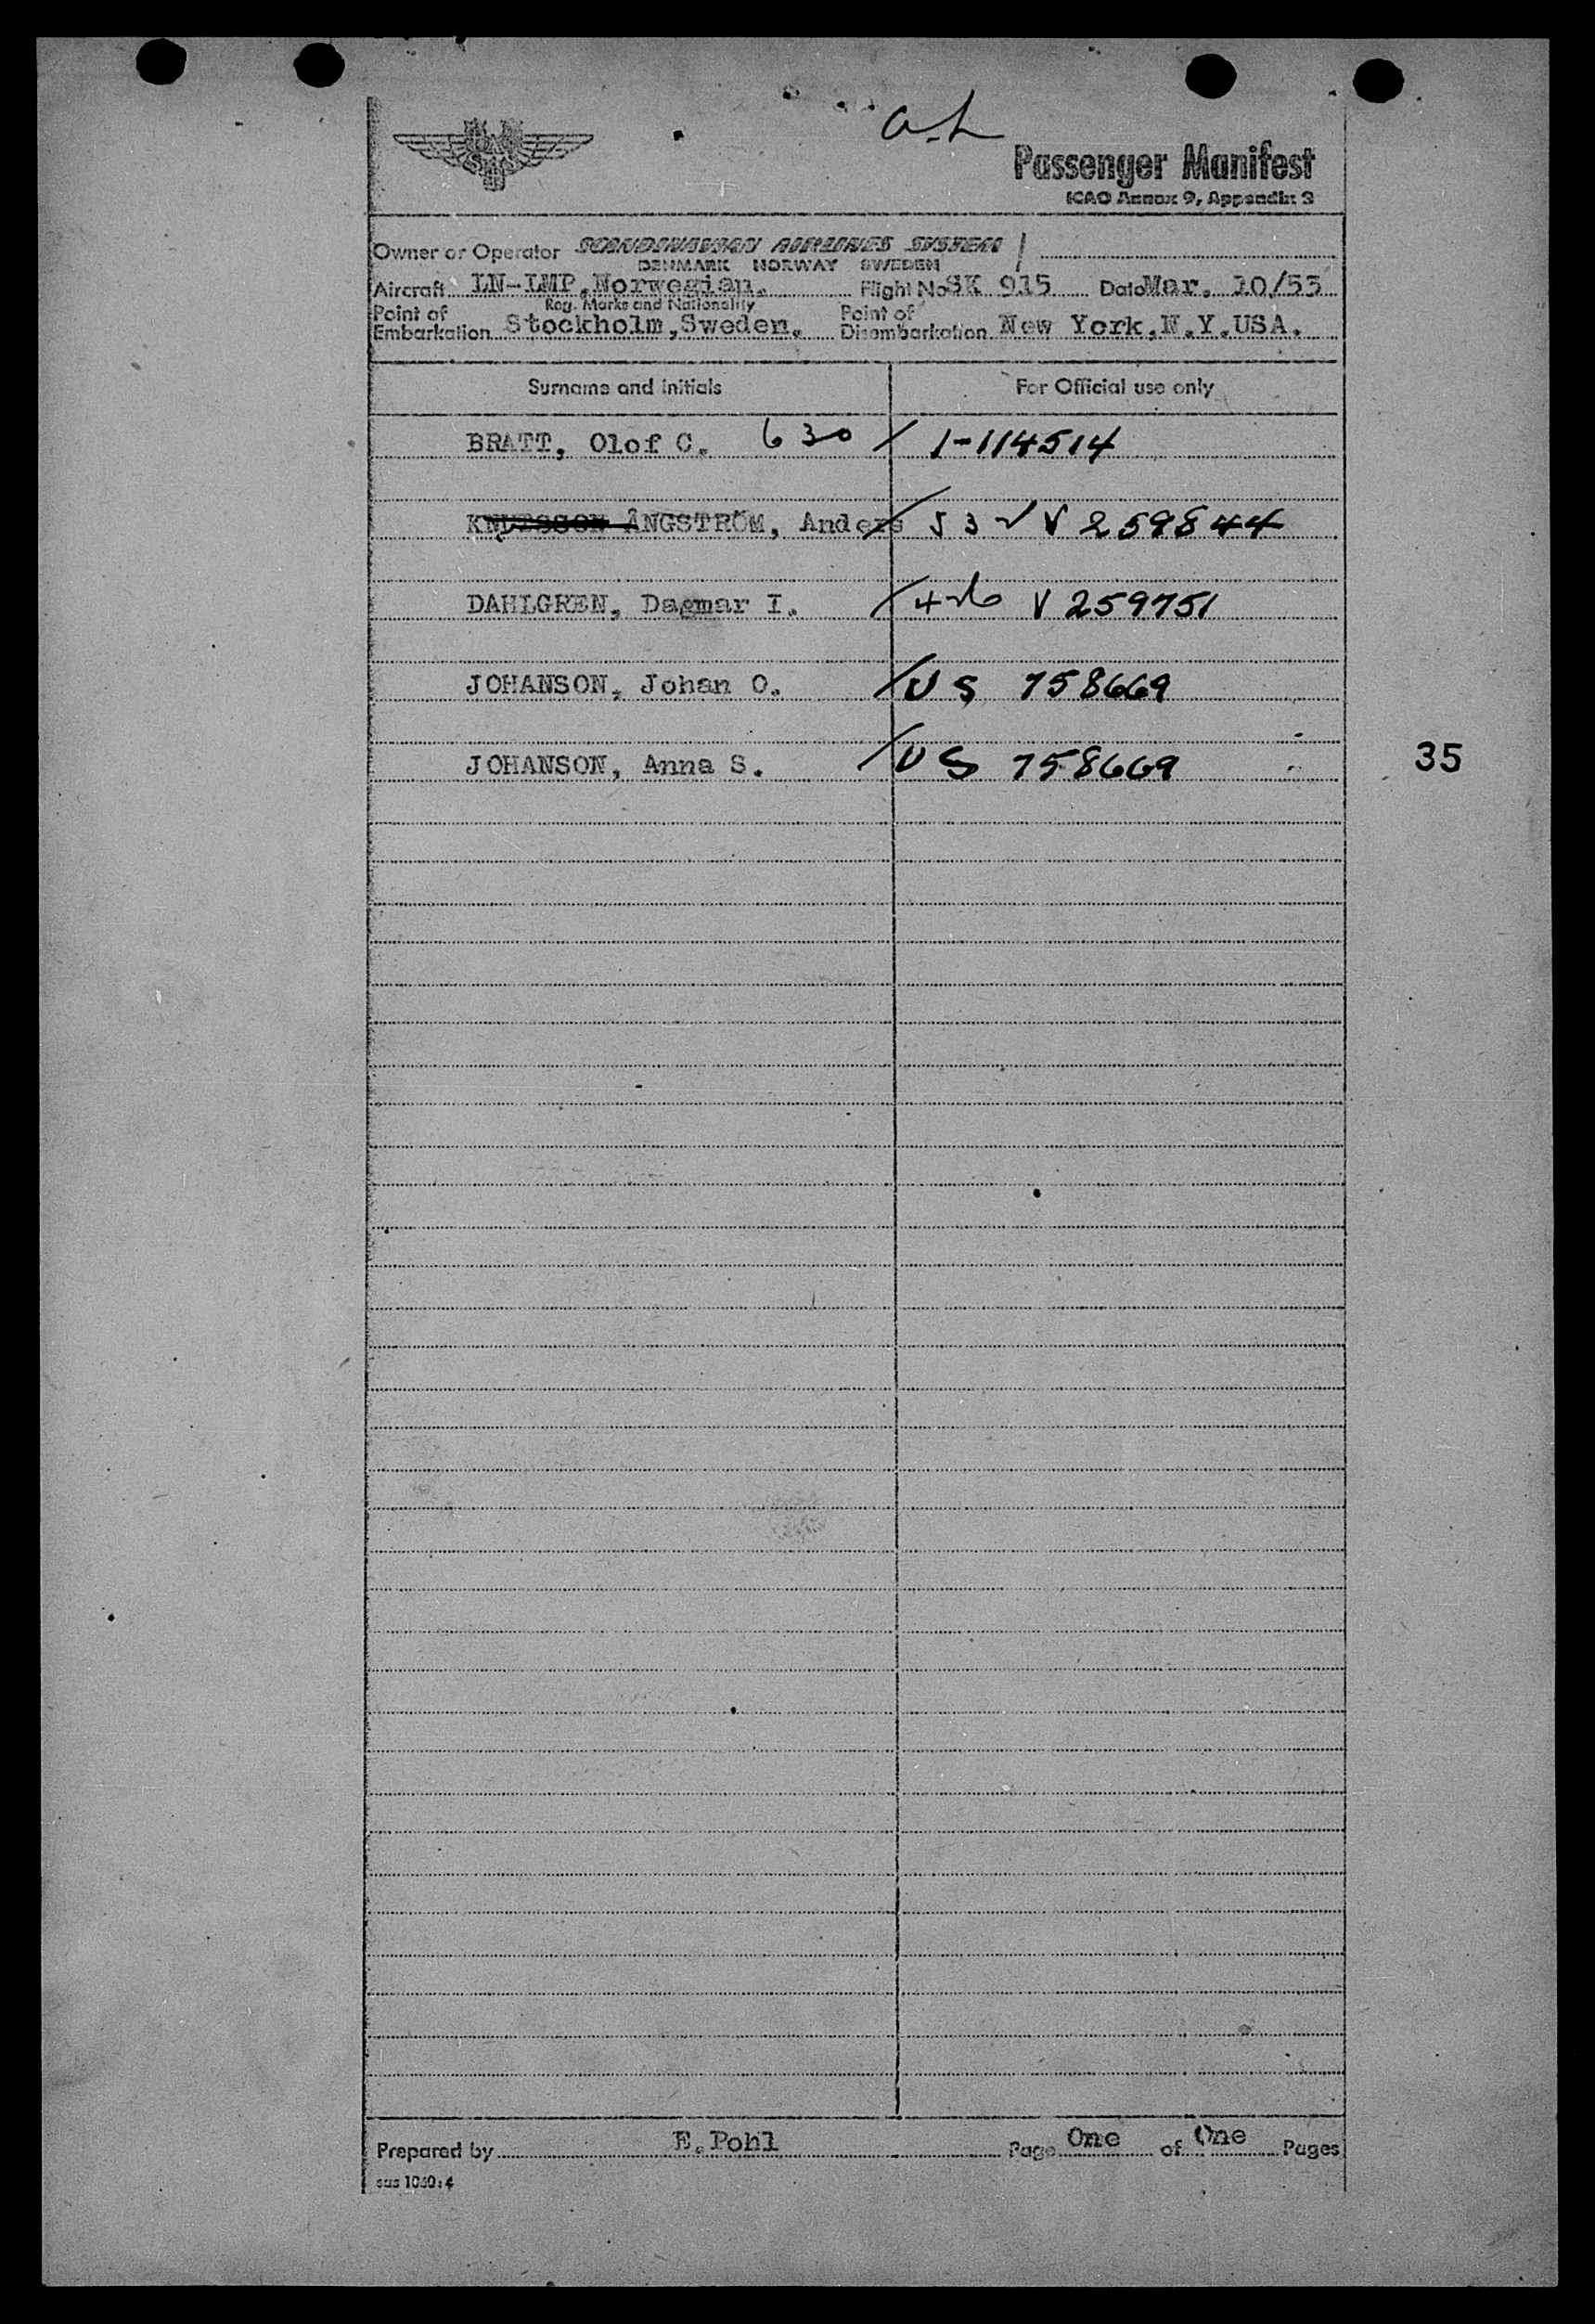 SAS
a.L
Passenger Manifest
ICAO Annex 9, Appendix 3
Owner or Operator SCANDINAVIAN AIRLINES SYSTEM
DENMARK NORWAY SWEDEN
Aircraft LN-LMP, Norwegian. Flight No SK 915 Date Mar. 10/53
Reg. Marks and Nationality
Point of Embarkation Stockholm, Sweden. Point of Disembarkation New York, N.Y. USA.
Surname and initials For Official use only
BRATT, Olof C. 630 / 1-114514
KNUTSSON ÅNGSTRÖM, Anders / 53 √ V 259844
DAHLGREN, Dagmar I. / V 259751
JOHANSON, Johan O. / US 758669
JOHANSON, Anna S. / US 758669
35
Prepared by E. Pohl Page One of One Pages
sas 1060:4